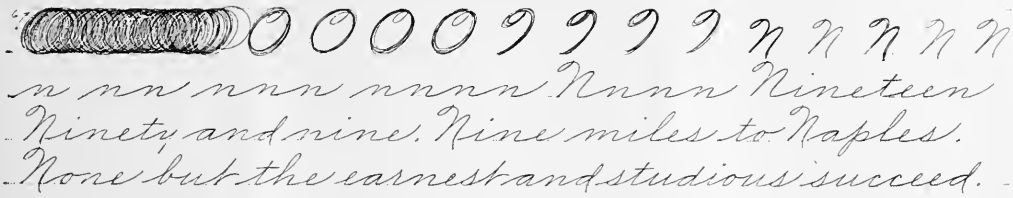 O O O O 9 9 9 9 N N N N N
n nn nnn nnnn Nnnn Nineteen
Ninety and nine. Nine miles to Naples.
None but the earnest and studious succeed.